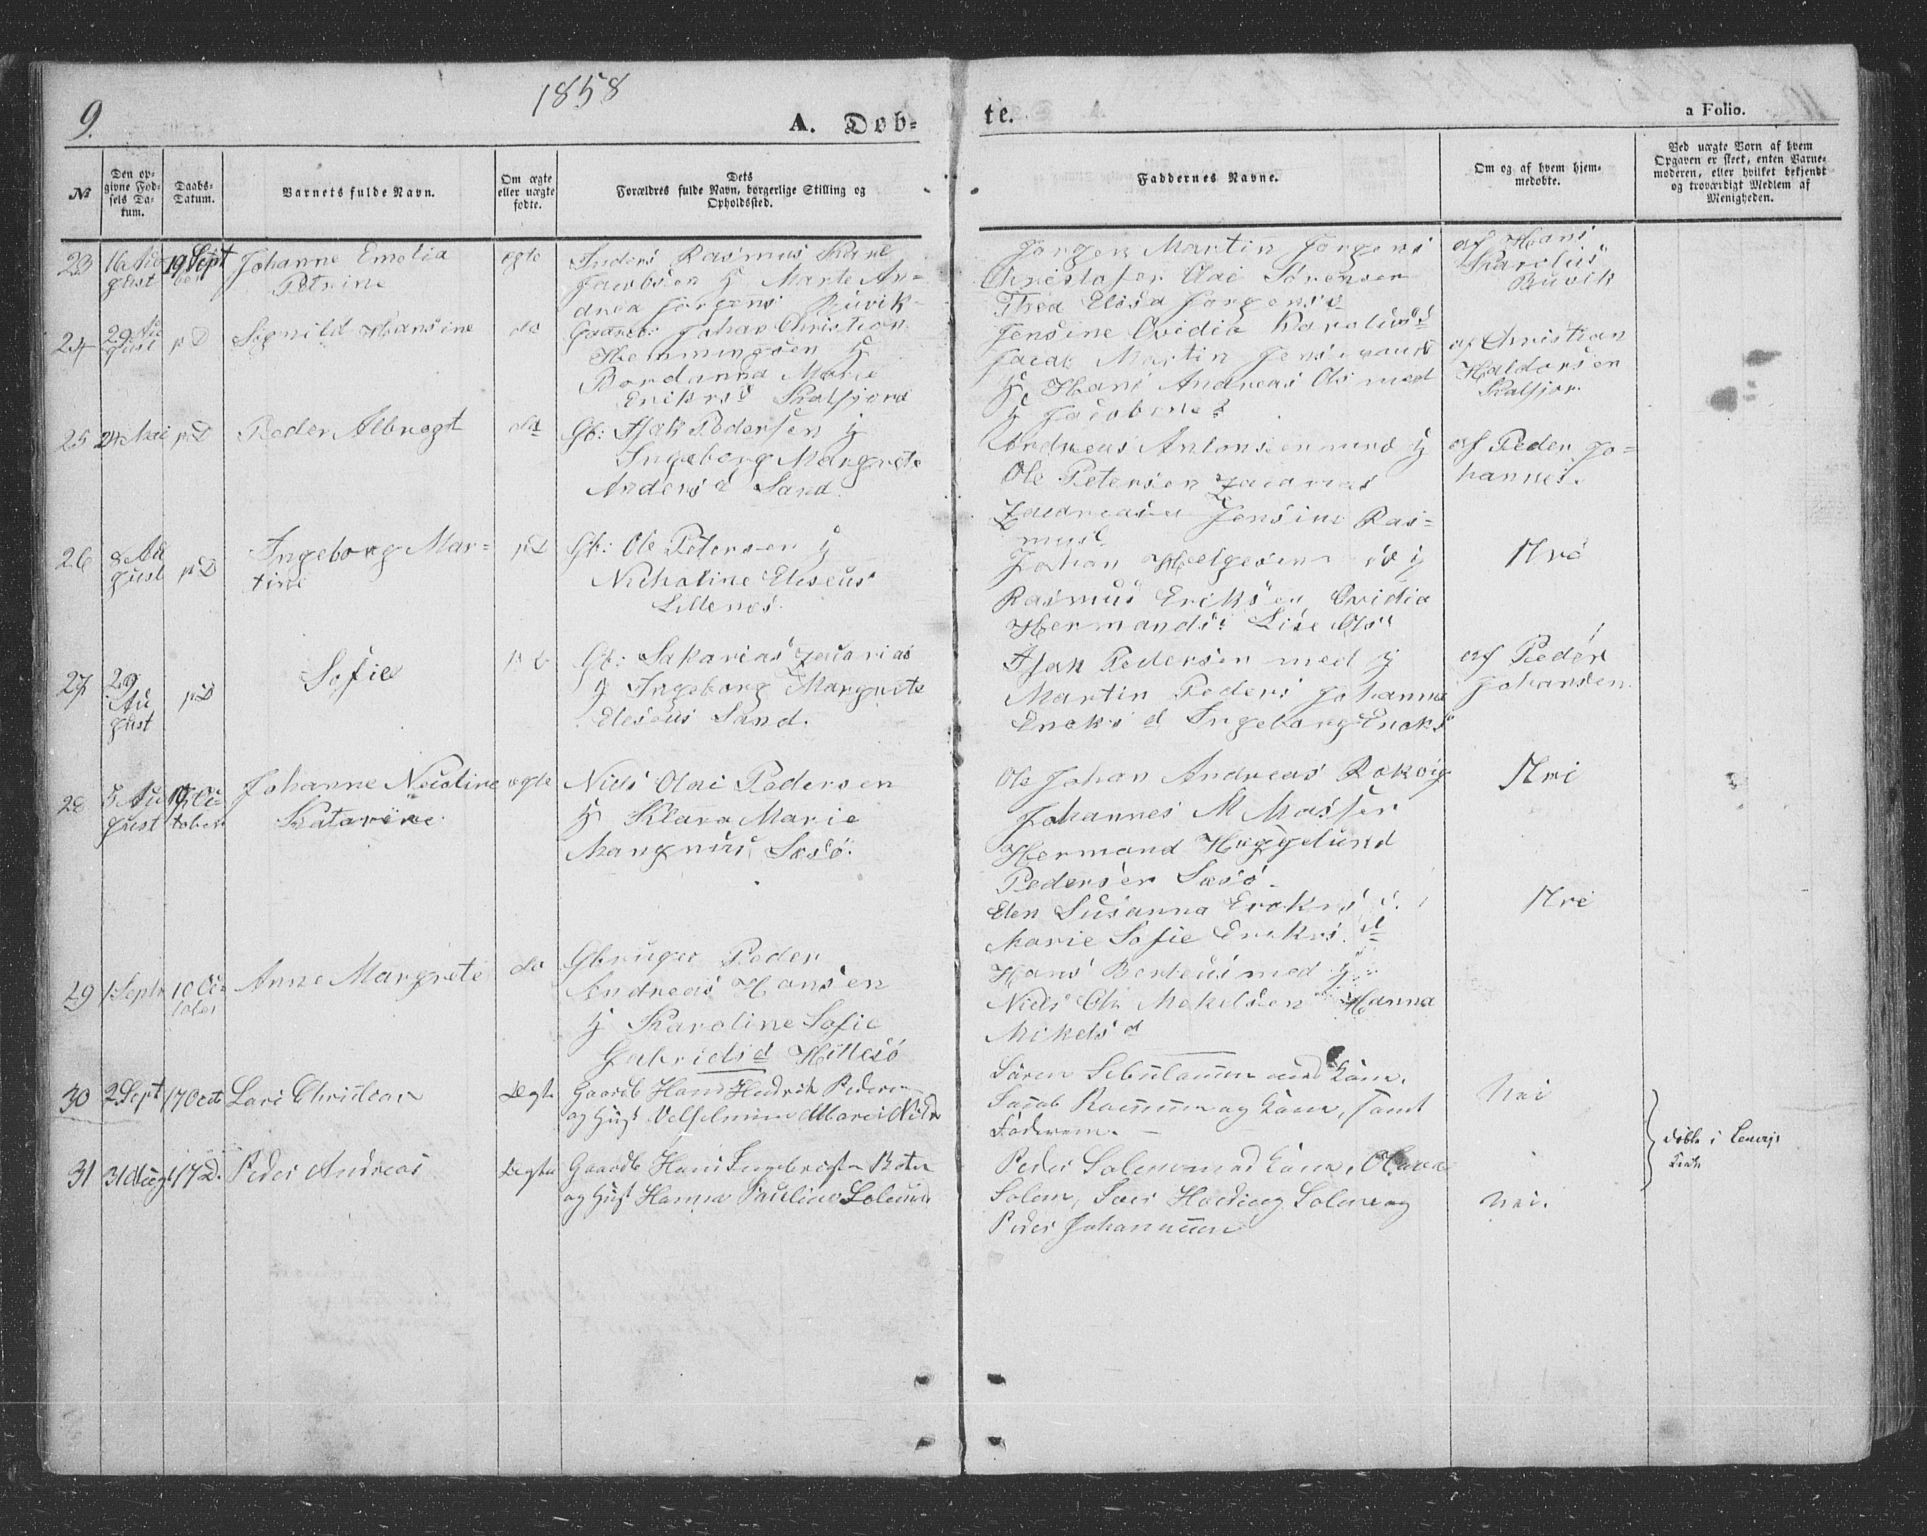 9.
1858
A. Døb-
te.
a Folio.
№
Den op-
givne Fød-
sels Da-
tum.
Daabs-
Datum.
Barnets fulde Navn.
Om ægte
eller uægte
fødte.
Dets
Forældres fulde Navn, borgerlige Stilling og
Opholdssted.
Faddernes Navne.
Om og af hvem hjem-
medøbte.
Ved uægte Børn af hvem
Opgaven er skeet, enten Barne-
moderen, eller hvilket bekjendt
og troværdigt Medlem af
Menigheden.
23
16 Au
gust
19 Sept
ber
Johanne Emelia
Petrine
egte
Inders Rasmus Karl
Jacobsen g Marte An-
drea Jørgens Buvik
Jørgen Martin Jørgens
Christofer Olai Sørensen
Thea Elisa Jørgens d
af Hans
Karolus
Buvik
24
29 Au
gust
p D
Signild Hansine
do
Gaarb: Johan Christian
Hemmingsen g
Bordanna Marie
Eriks d Kalfjord
Jensine Ovidia Karolus d
Jacob Martin Jens
g Hans Andreas Ols med
g Jacobine
af Christian
Haldorsen
Kalfjor
25
24 Mai
p D
Peder Albregt
do
Gb: Isak Pedersen g
Ingeborg Margrete
Anders d Sand.
Andreas Antonsen med g
Ole Petersen Zacarias
Zacariasen Jensine Ras-
mus d
af Peder Jo-
hannes.
26
8 Au
gust
p D
Ingeborg Mar-
tine
p D
Gb: Ole Petersen g
Nicholine Eliseus
Lillenes.
Johan Helgesen g
Rasmus Eriksen Ovidia
Hermands: Lise Ols
Nei
27
29
Au
gust
p D
Sofie
p D
Gb: Sakarias Zacarias
g Ingeborg Margrete
Eleseus Sand.
Isak Pedersen med g
Martin Peders Johanna
Enoks d Ingeborg Enoks
af Peder
Johansen
28
5 Au
gust
10 Oc
tober
Johanne Nicoline
Katarine
egte
Niels Olai Pedersen
g Klara Marie
Mangnus Sæsø.
Ole Johan Andreas Rokvig
Johannes M Masser
Hermand Hæggelund
Pedersen Sæsø
Elen Susanna Eroks
Marie Sofie Eriks d
Nei
29
1 Septr
10 Oc-
tober
Anne Margrete
do
Gbruger Peder
Andreas Hansen
g Karoline Sofie
Gabriels d Hillesø
Hans Berteus med g
Niels Ch Mekelsen Hanna
Mikels d
Nei
30
2 Sept
17 Oct
Lars Christian
Ægte
Gaardb Hans Hendrik Pedersen
og Hust Velhelmine Marie Nils
Sören med Kone.
Jacob Rasmussen og Kone, samt
Faderen.
Nei
31
31 Aug
17 D.
Peder Andreas
Ægte
Gaardb Hans Ingebrigtsn Boten
og Hust Hanna Pauline Solem
Peder Solem med Kone, Olava
Solem, Lars Solem og
Peder Johannesen
Nei.
døbte i Lenvigs
Kirke